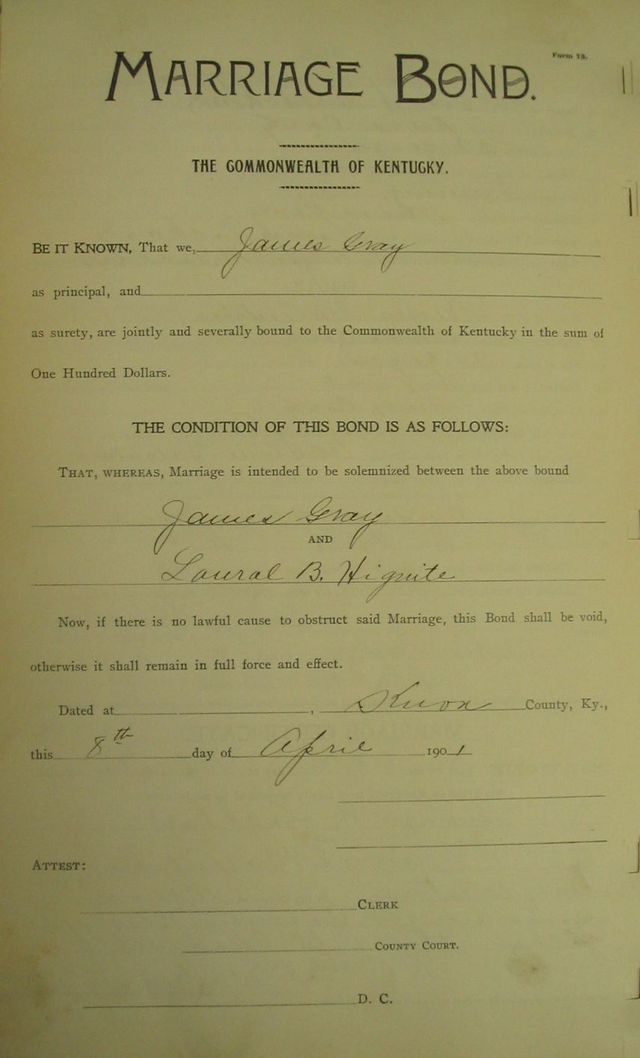 Form 18.
MARRIAGE BOND.
THE COMMONWEALTH OF KENTUCKY.
BE IT KNOWN, That we, James Gray
as principal, and
as surety, are jointly and severally bound to the Commonwealth of Kentucky in the sum of
One Hundred Dollars.
THE CONDITION OF THIS BOND IS AS FOLLOWS:
THAT, WHEREAS, Marriage is intended to be solemnized between the above bound
James Gray
AND
Laural B. Hignite
Now, if there is no lawful cause to obstruct said Marriage, this Bond shall be void,
otherwise it shall remain in full force and effect.
Dated at , Knox County, Ky.,
this 8th day of April 1901
ATTEST:
CLERK
COUNTY COURT.
D. C.